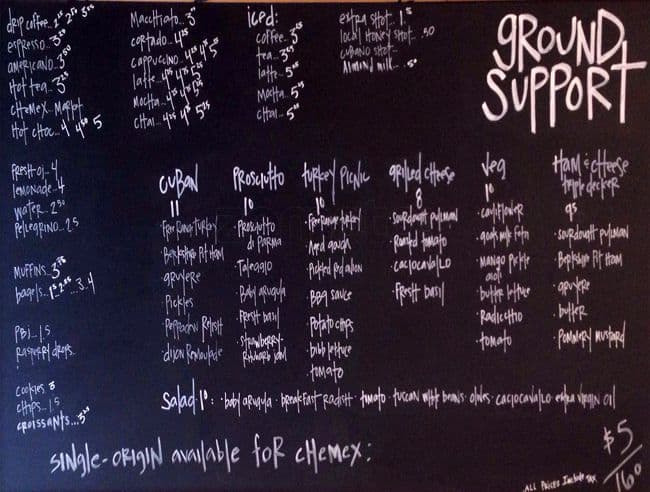 GROUND
SUPPORT
drip coffee
espresso
americano
Hot tea
CHemex.. Market
Hot CHoc.. 4
Macchiato.. 3
cortado
cappuccino
latte
Mocha
CHai
iced:
coffee
tea
latte
Mocha
CHai
extra shot
local Honey shot.. .50
cubano shot..
Almond milk
FresH OJ.. 4
lemonade.. 4
water.. 2.50
Pellegrino.. 2.5
MUFFINS
bagels
PBJ.. 1.5
Raspberry drops..
cookies
CHips.. 1.5
croissants
CUBAN
11
Free Range turkey
Berkshire Pit Ham
gruyere
Pickles
Pepperoncini Relish
dijon Remoulade
PROSCIUTTO
10
Prosciutto
di Parma
Taleggio
Baby arugula
FresH basil
strawberry-
RHubarb jam
turkey Picnic
10
Free Range turkey
Aged gouda
Pickled red onion
BBQ sauce
Potato CHips
bibb lettuce
tomato
grilled cHeese
8
sourdough pullman
Roasted tomato
caciocavallo
FresH basil
Veg
10
cauliflower
goats milk feta
Mango Pickle
aioli
butter lettuce
RadiccHio
tomato
Ham & cHeese
triple decker
9.5
sourdough pullman
Berkshire Pit Ham
gruyere
butter
Pommery mustard
Salad 10: · baby arugula · breakfast Radish · tomato · tuscan white beans · olives · caciocavallo · extra virgin oil
SINGLE-ORIGIN AVAILABLE FOR CHEMEX:
$5
16 oz
ALL PRICES Include TAX